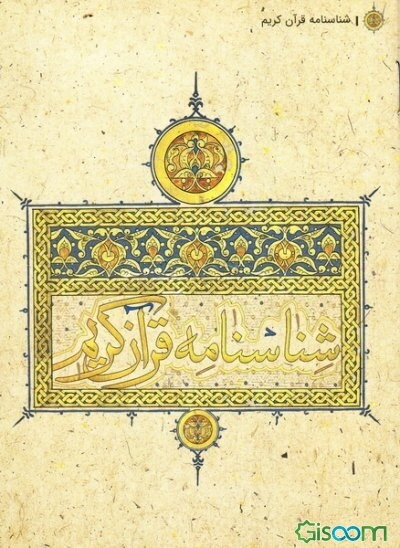 شناسنامه قرآن کریم
شناسنامه قرآن کریم
Gisoom